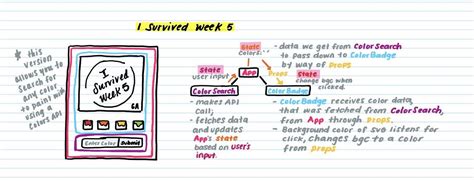 I Survived Week 5
* this
version
allows you to
search for
any color
to paint with
using a
Colors API
I
Survived
Week 5
GA
Enter Color Submit
State
Colors:
- data we get from ColorSearch
to pass down to ColorBadge
by way of Props
State
user input
App
Props
State
change bgc when
clicked.
ColorSearch
- makes API
call;
- fetches data
and updates
App's state
based on user's
input.
ColorBadge
- ColorBadge receives color data,
that was fetched from ColorSearch,
from App through Props.
- Background color of svg listens for
click, changes bgc to a color
from props